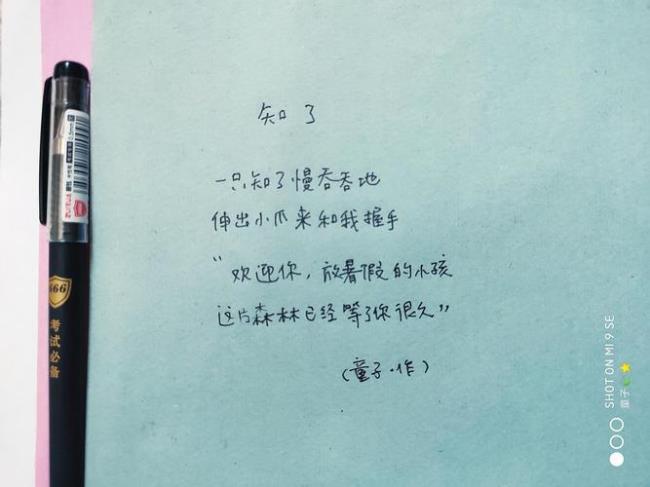 知了
一只知了慢吞吞地
伸出小爪来和我握手
“欢迎你，放暑假的小孩
这片森林已经等了你很久”
（童子·作）
666
考试必备
SHOT ON MI 9 SE
童子